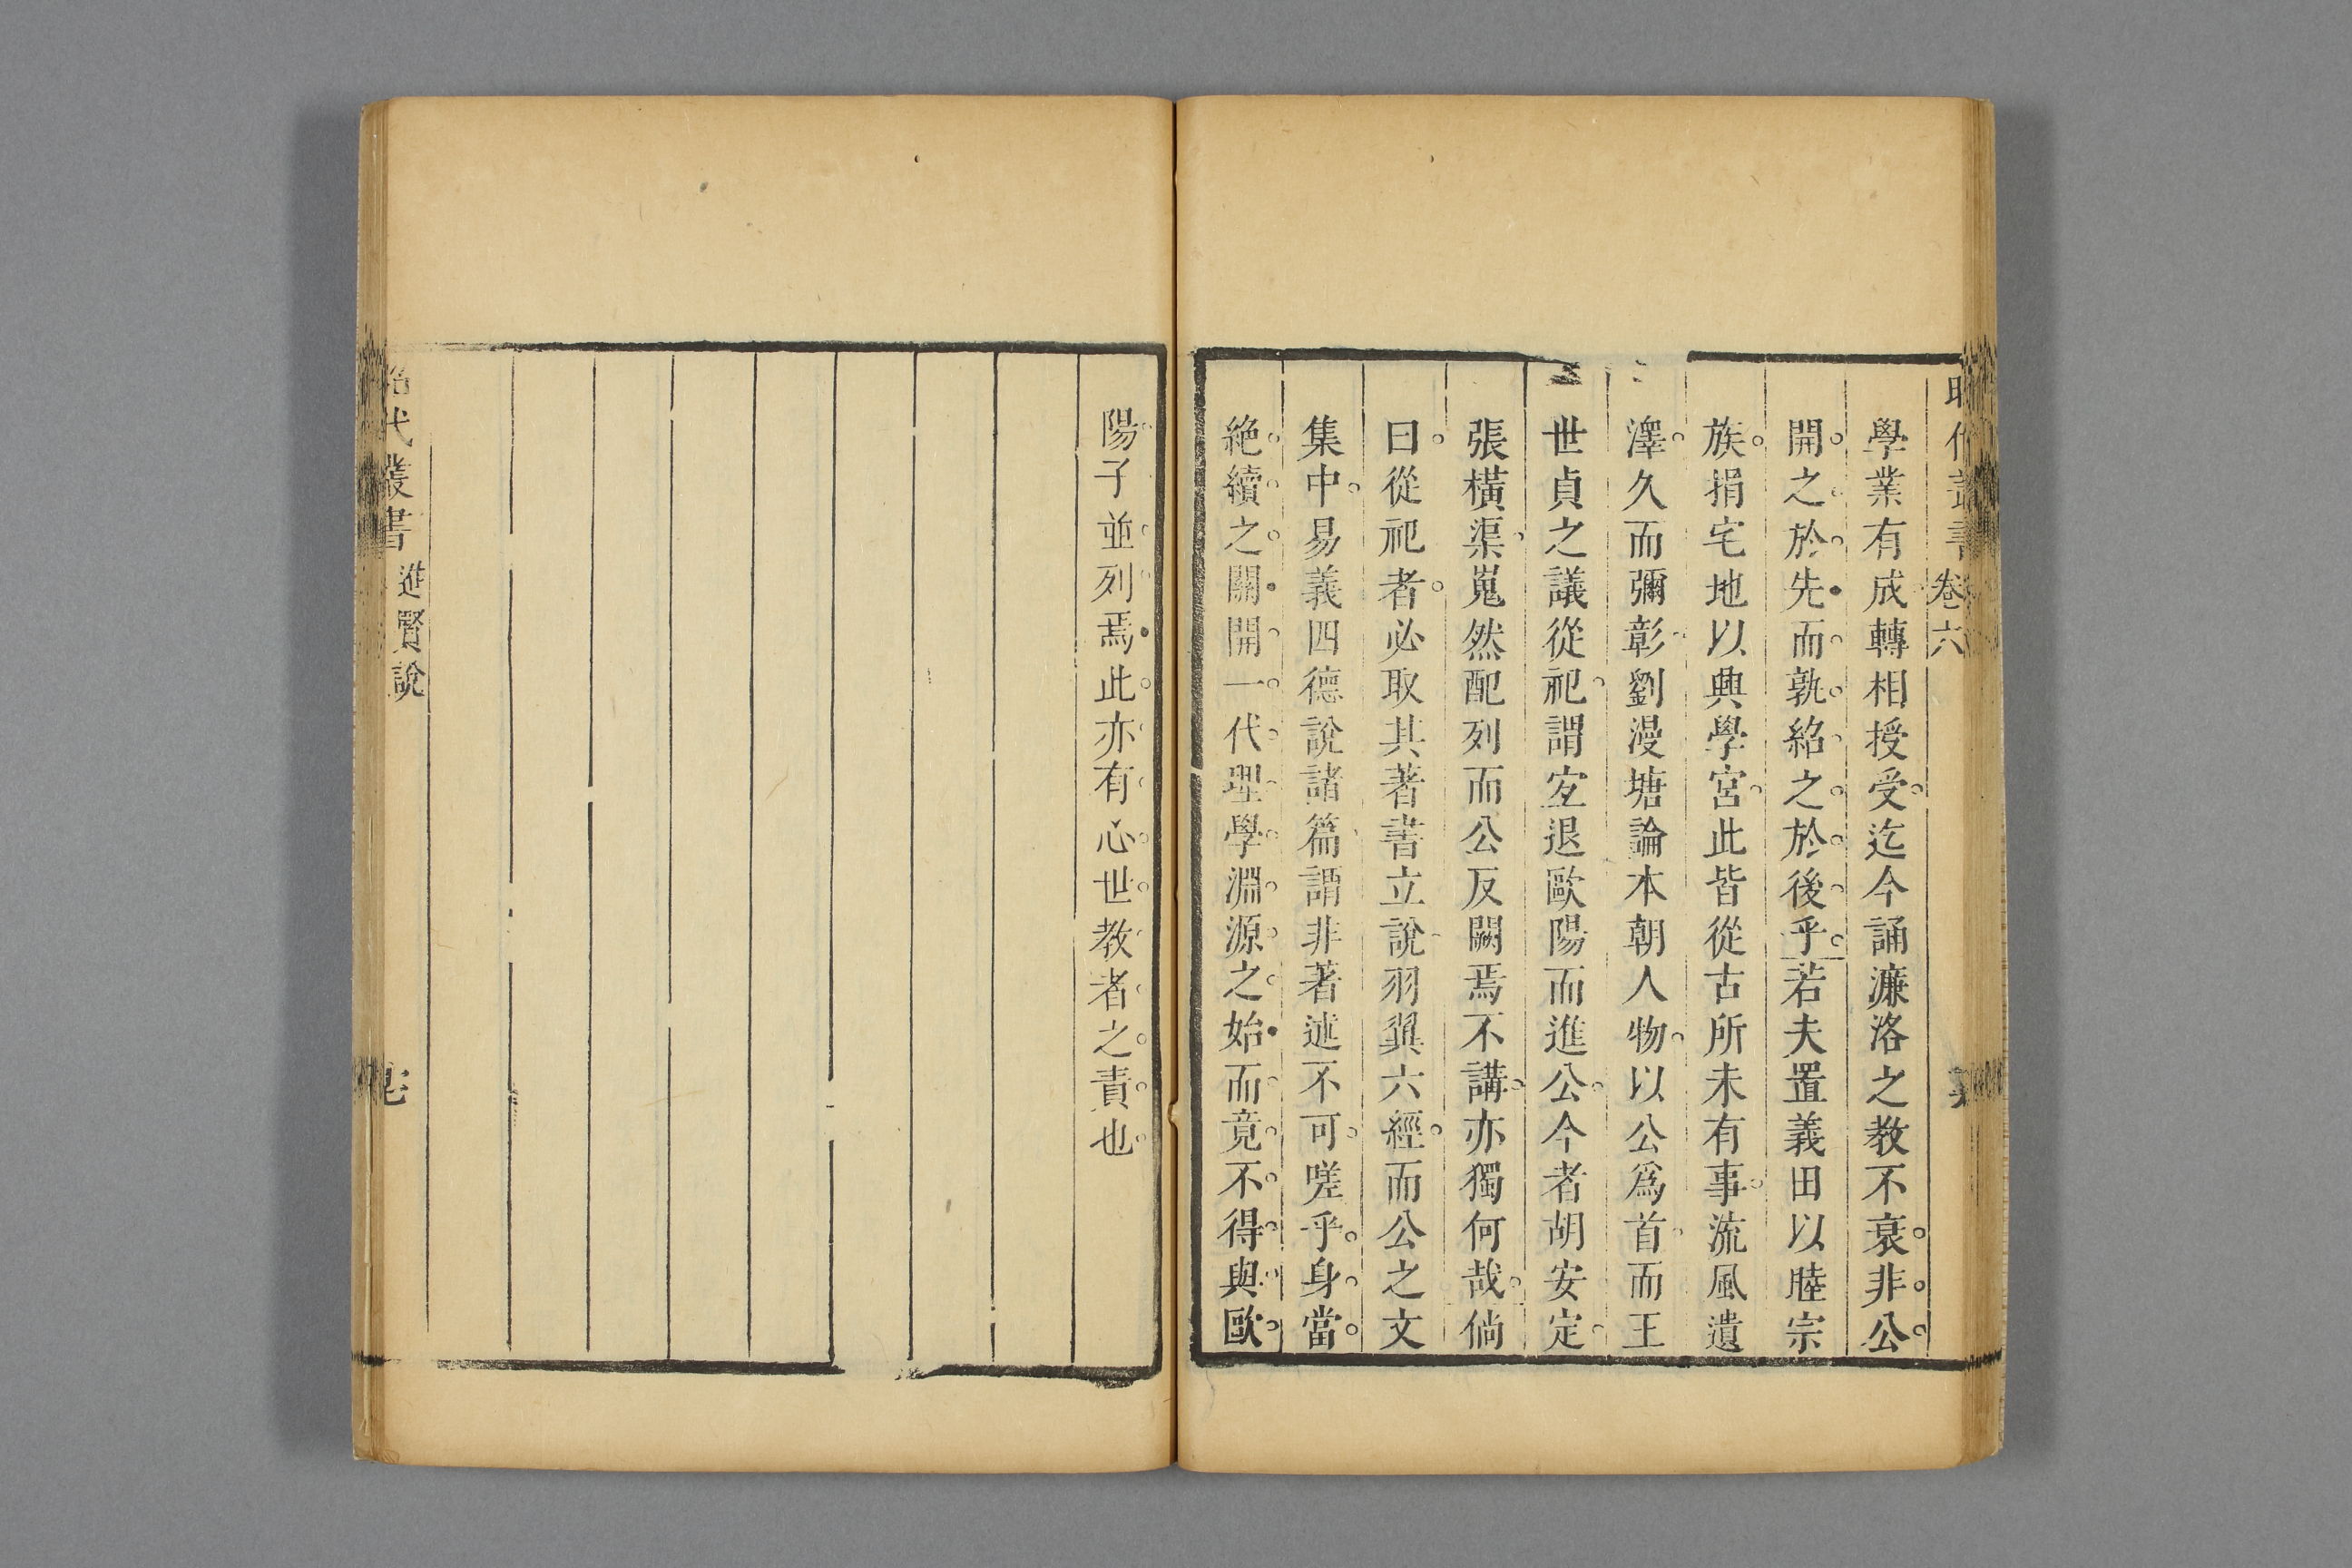 昭代叢書 卷六
學業有成轉相授受迄今誦濂洛之教不衰非公
開之於先而孰紹之於後乎若夫置義田以睦宗
族捐宅地以興學宮此皆從古所未有事流風遺
澤久而彌彰劉漫塘論本朝人物以公爲首而王
世貞之議從祀謂宐退歐陽而進公今者胡安定
張橫渠嵬然配列而公反闕焉不講亦獨何哉倘
曰從祀者必取其著書立說羽翼六經而公之文
集中易義四德說諸篇謂非著述不可嗟乎身當
絶續之關開一代理學淵源之始而竟不得與歐
陽子並列焉此亦有心世教者之責也
昭代叢書 進賢說